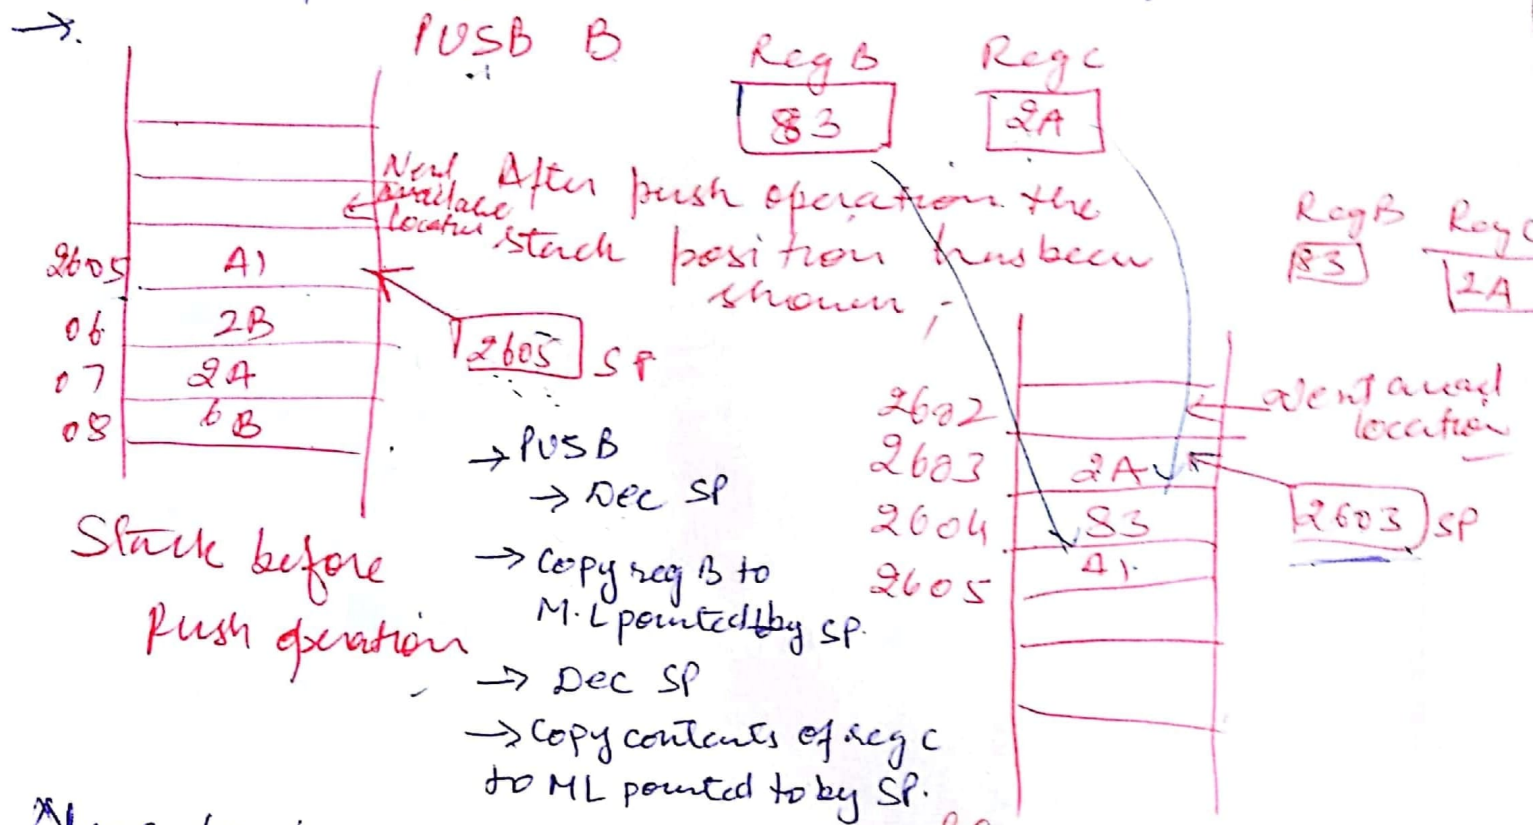 →.
PUSB B
Reg B
83
Reg C
2A
Next
available
location
After push operation the
stack position has been
shown ;
Reg B
83
Reg C
2A
2605 A1
06 2B
07 2A
08 6B
2605 SP
Stack before
Push operation
→ PUSB
→ Dec SP
→ Copy reg B to
M.L pointed by SP.
→ Dec SP
→ Copy contents of reg C
to ML pointed to by SP.
2602
Next avail
location
2603 2A
2604 83
2603 SP
2605 A1.